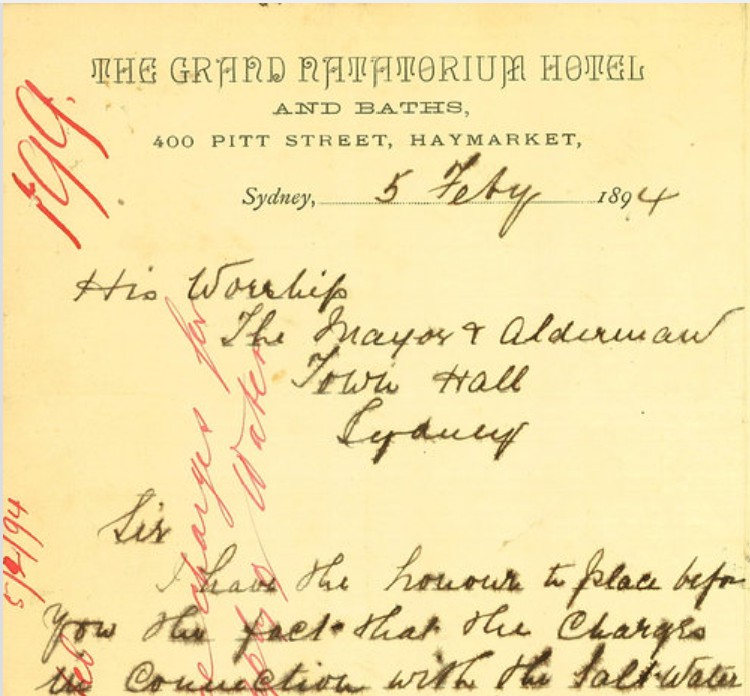 THE GRAND NATATORIUM HOTEL
AND BATHS,
400 PITT STREET, HAYMARKET,
Sydney, 5 Feby 1894
His Worship
The Mayor & Alderman
Town Hall
Sydney
Sir
I have the honour to place befor
you the fact that the Charges
in Connection with the Salt Water
199.
5/2/94
charges for
Water